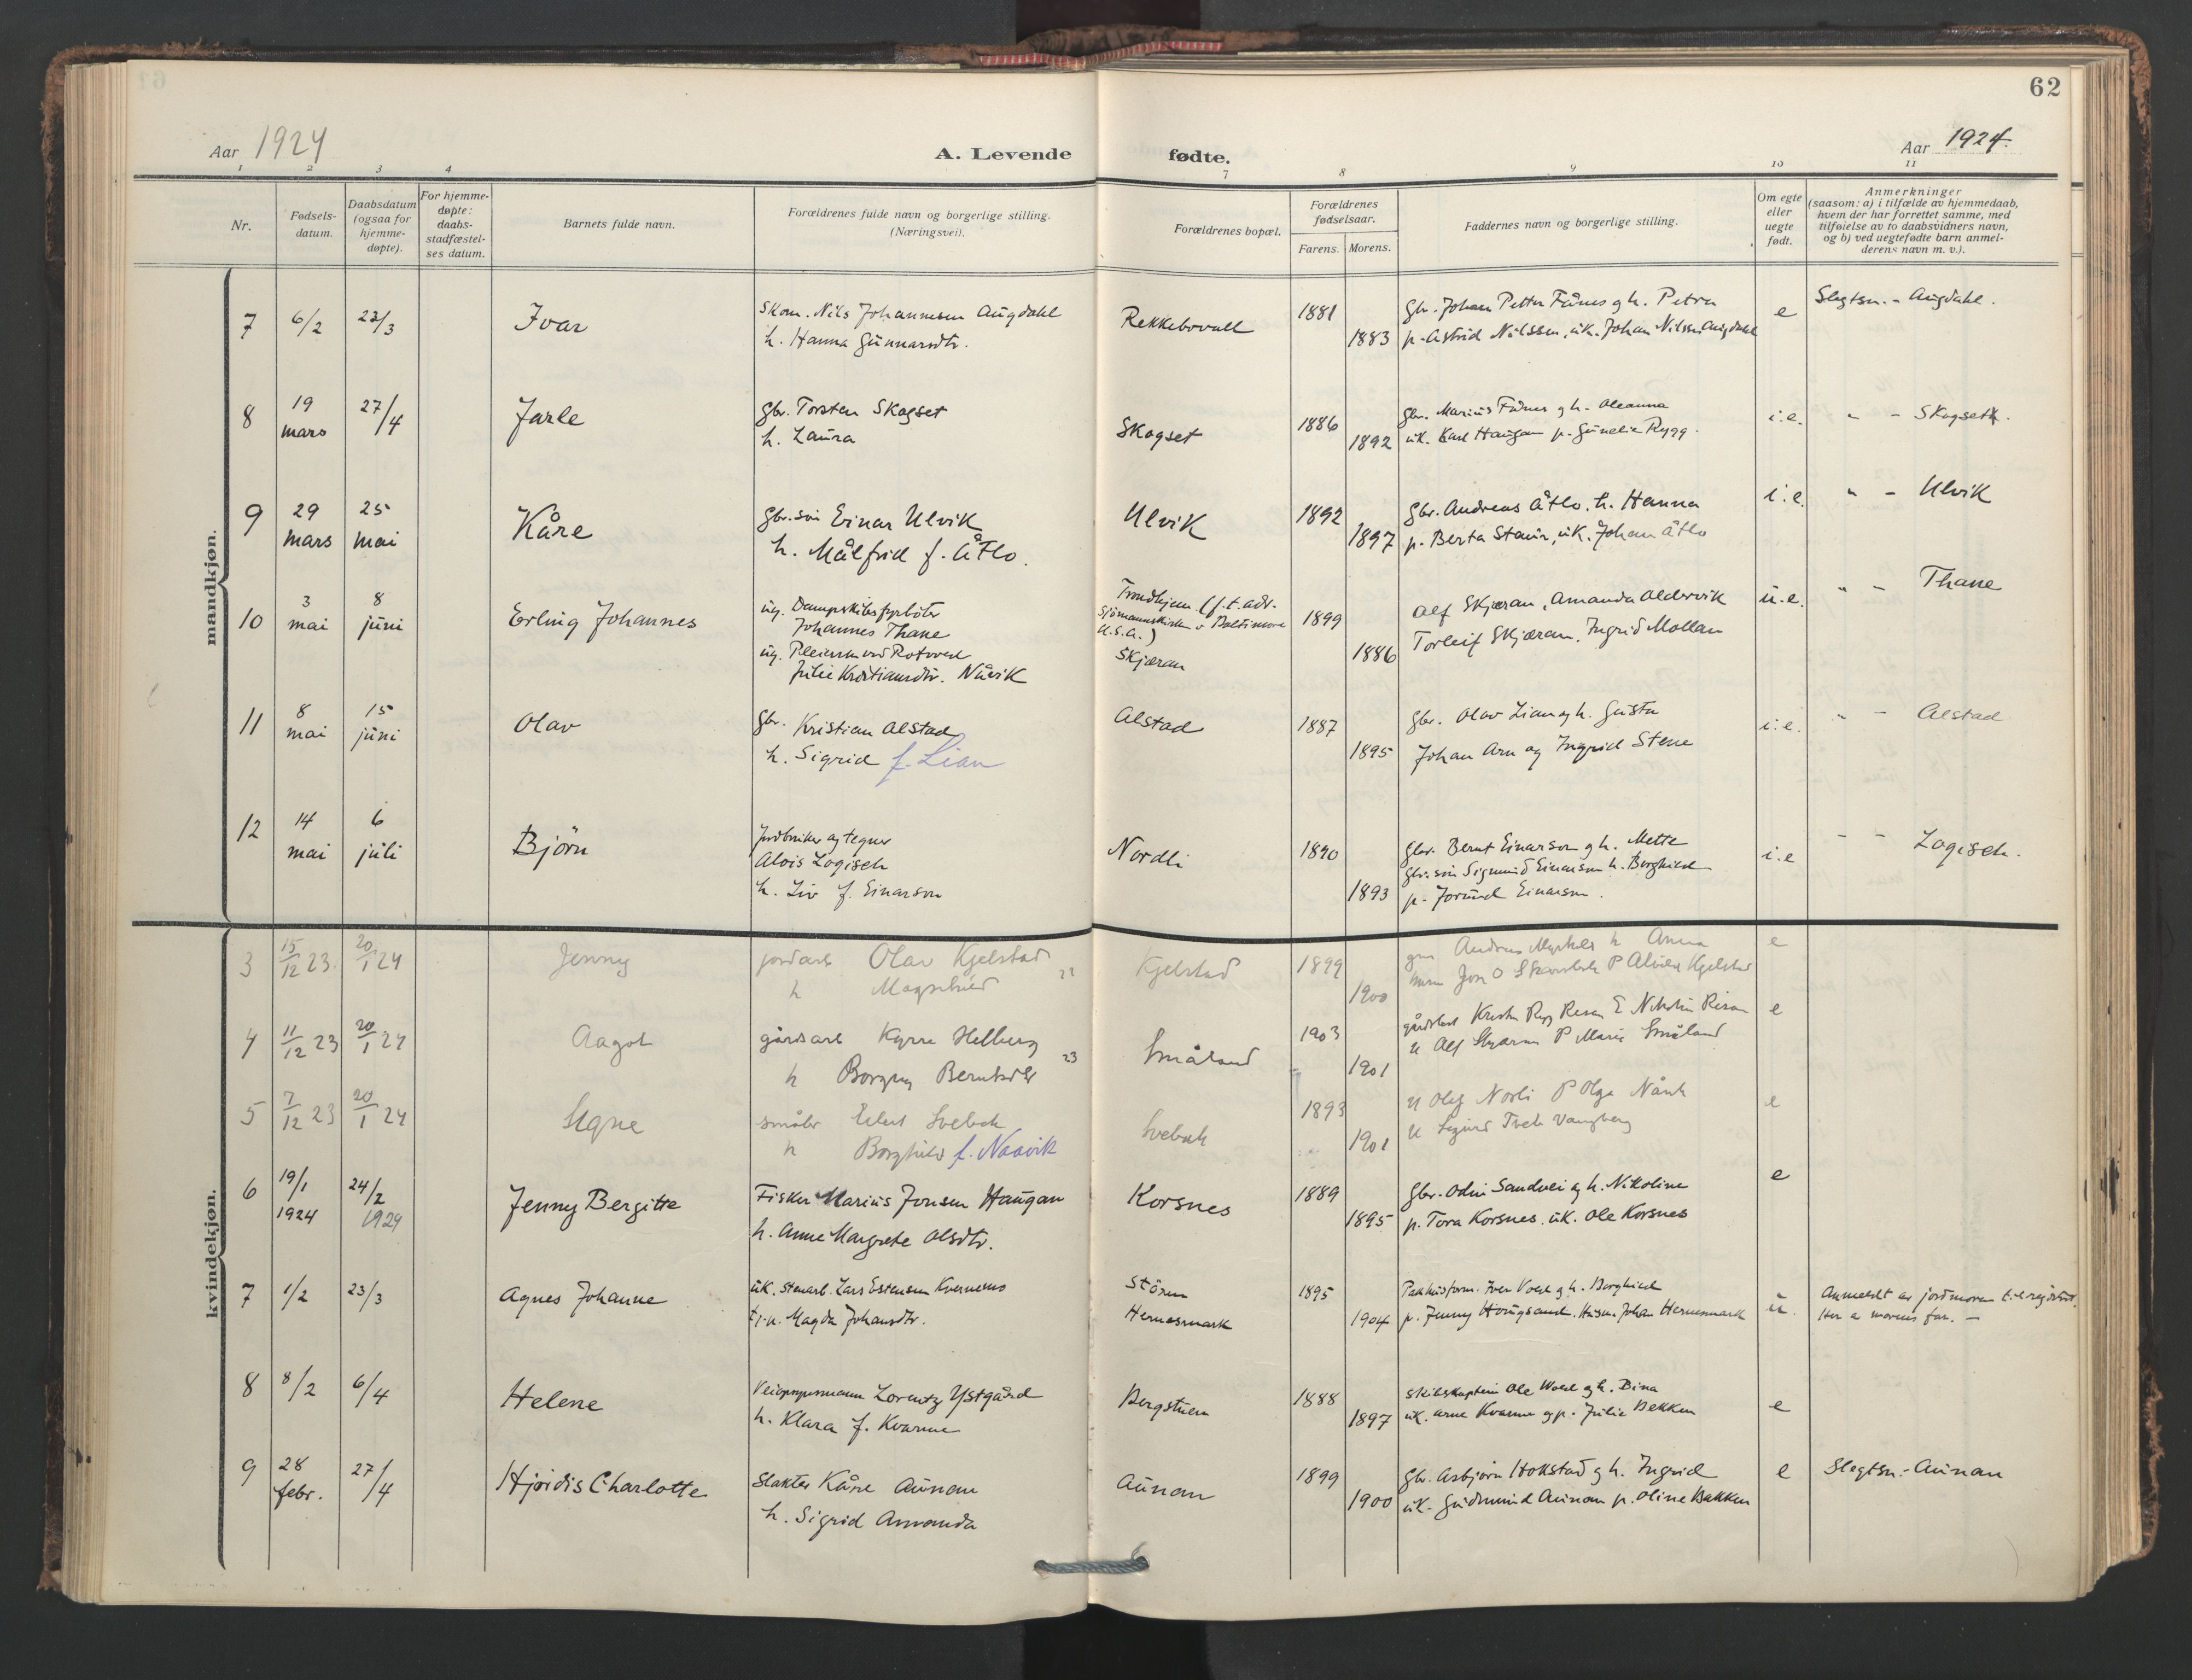 62
Aar 1924
A. Levende fødte.
Aar 1924.
1 2 3 4 7 8 9 10 11
Nr.
Fødsels-
datum.
Daabsdatum
(ogsaa for
hjemme-
døpte).
For hjemme-
døpte:
daabs-
stadfæstel-
ses datum.
Barnets fulde navn.
Forældrenes fulde navn og borgerlige stilling.
(Næringsvei).
Forældrenes bopæl.
Forældrenes
fødselsaar.
Farens. Morens.
Faddernes navn og borgerlige stilling.
Om egte
eller
uegte
født.
Anmerkninger
(saasom: a) i tilfælde av hjemmedaab,
hvem der har forrettet samme, med
tilføielse av to daabsvidners navn,
og b) ved uegtefødte barn anmel-
derens navn m. v.).
mandkjøn.
7 6/2 23/3 Ivar Skom. Nils Johannesen Augdahl Rekkebovall 1881 gbr. Johan Petter Fånes og h. Petra e Slegtsn. - Augdahl.
h. Hanna Gunnarsdtr. 1883 p. Astrid Nilssen, uk. Johan Nilssen Augdahl
8 19 mars 27/4 Jarle gbr. Torsten Skogset Skogset 1886 gbr. Marius Fånes og h. Oleanna i.e. " - Skogseth.
h. Laura 1892 uk. Karl Haugan p. Gunelie Rygg.
9 29 mars 25 mai Kåre gbr. søn Einar Ulvik Ulvik 1892 gbr. Andreas Åtlo, h. Hanna i.e. " - Ulvik
h. Målfrid f. Åtlo. 1897 p. Berta Staur, uk. Johan Åtlo
10 3 mai 8 juni Erling Johannes ug. Dampskibsfyrbøter Trondhjem (f.t. adr. 1899 Alf Skjæran, Amanda Aldervik u.e. " - Thane
Johannes Thane Sjömannskirken v Baltimore
ug. Pleierske ved Rotvoll U.S.A.) 1886 Torleif Skjæran, Ingrid Mollan
Julie Kristiansdtr. Nåvik Skjæran
11 8 mai 15 juni Olav gbr. Kristian Alstad Alstad 1887 gbr. Olav Lian og h. Gusta i.e. " - Alstad
h. Sigrid f. Lian 1895 Johan Arn og Ingrid Stene
12 14 mai 6 juli Björn Jordbruker og tegner Nordli 1890 gbr. Bernt Einarson og h. Mette i.e " - Logisch.
Alois Logisch gbr. søn Sigmund Einarson h. Borghild
h. Liv f. Einarson 1893 p. Jorund Einarson.
kvindekjøn.
3 15/12 23. 20/1 24 Jenny jordarb Olav Kjelstad 22 Kjelstad 1899 Andreas h Anna e
h Magnhild 1900 Jon O P Kjelstad
4 11/12 23 20/1 24 Aagot gårdsarb Kyrre Helberg 23 Småland 1903 e
h Borgny 1901 u Alf Skjæran P Marie Småland
5 7/12 23 20/1 24 Signe småbr 1893 u Olaf Norli P Olga Nåvik e
h Borghild f. Naavik 1901 u Sigurd
6 19/1 1924 24/2 1924 Jenny Bergitte Fisker Marius Jonsen Haugan Korsnes 1889 gbr. Odin Sandvei og h. Nikoline e
h. Anne Margrete Olsdtr. 1895 p. Tora Korsnes, uk. Ole Korsnes
7 1/2 23/3 Agnes Johanne uk. stenarb. Lars Estensen Kvernmo Stören 1895 Pakhusform. Iver Vold og h. Borghild u. Anmeldt av jordmoren til registret.
tj. u. Magda Johansdtr. Hernesmark 1904 p. Jenny Hougsand, Husm. Johan Hernesmark Her av morens far. -
8 8/2 6/4 Helene Veiopsynsmann Lorentz Ystgård Bergstuen 1888 Skibskaptein Ole Wold og h. Dina e
h. Klara f. Kvarme 1897 uk. Arne Kvarme og p. Julie Bekken
9 28 febr. 27/4 Hjördis Charlotte Slakter Kåre Aunan Aunan 1899 gbr. Asbjørn Hokstad og h. Ingrid e Slegtsn. - Aunan
h. Sigrid Amanda 1900 uk. Gudmund Aunan p. Oline Bakken